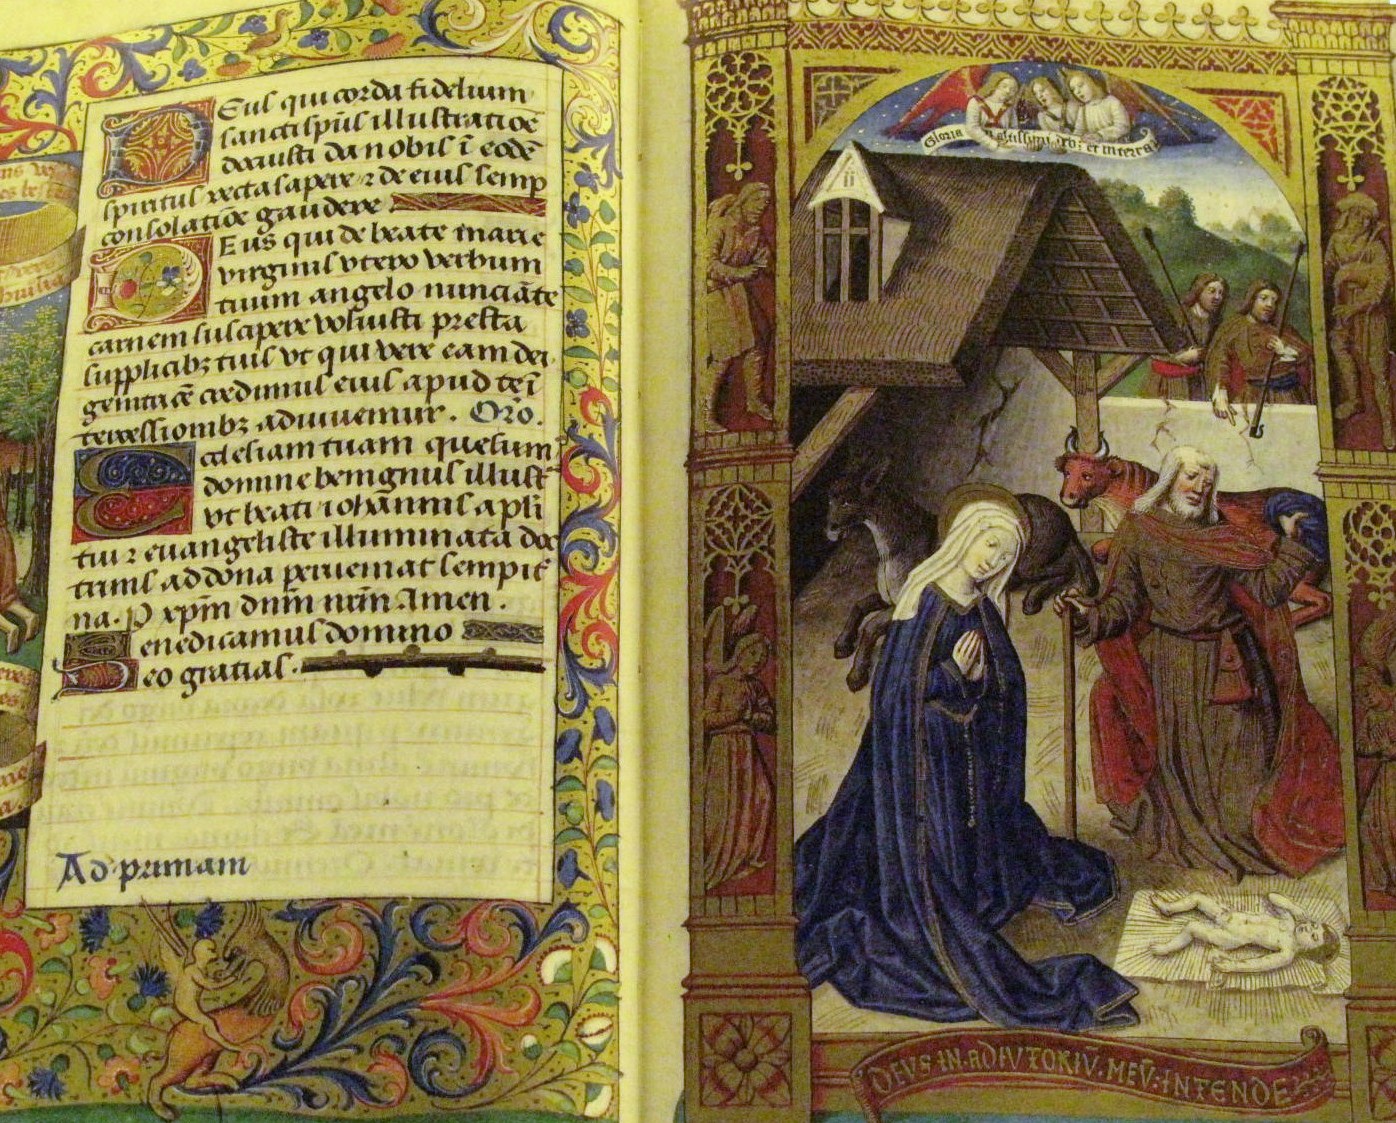 Deus qui corda fidelium
sancti sp̄us illustratiōe
docuisti da nobis ī eodē
spiritu recta sapere ⁊ de eius semp
consolatiōe gaudere
Deus qui de beate marie
virginis utero verbum
tuum angelo nunciāte
carnem suscipere voluisti presta
supplicibꝫ tuis ut qui vere eam dei
genitricē credimus eius apud te ī
tercessionibꝫ adiuvemur. Or̄o.
Ecclesiam tuam quesum
domine benignus illust
ut beati iohannis apl̄i
tui ⁊ euangeliste illuminata doc
trinis ad dona perveniat sempit
na. P xp̄m dn̄m nr̄m. Amen.
Benedicamus domino
Deo gratias.
Ad primam
Gloria altissimis deo et in terra
DEUS·IN·ADIVTORIV·MEV:INTENDE